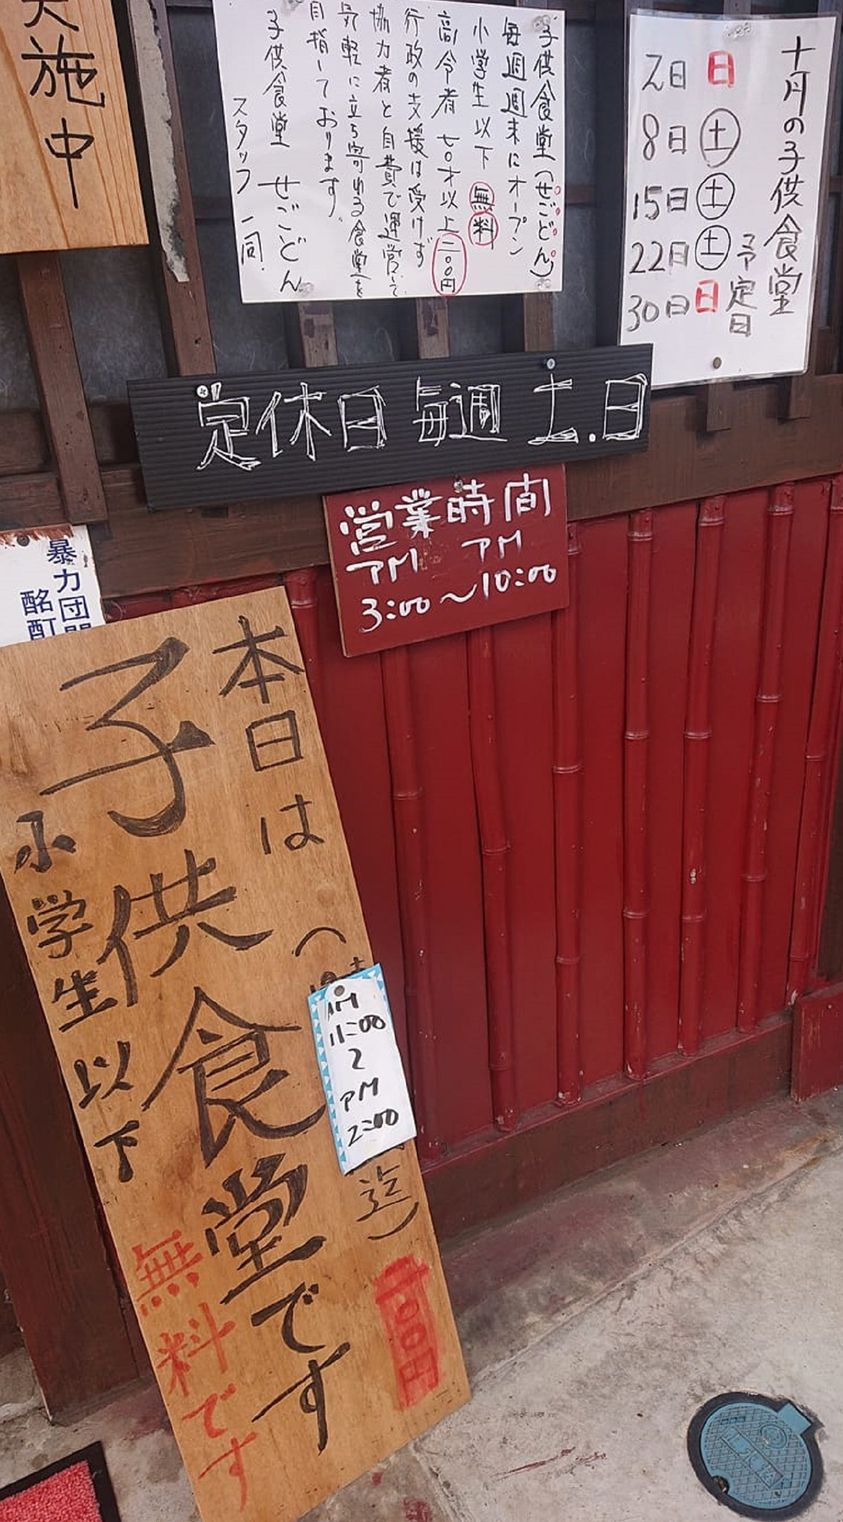 実施中
子供食堂(せごどん)
毎週週末にオープン
小学生以下 無料
高令者 七〇才以上 二〇〇円
行政の支援は受けず
協力者と自費で運営して
気軽に立ち寄れる食堂を
目指しております。
子供食堂 せごどん
スタッフ一同
十月の子供食堂
予定日
2日 日
8日 土
15日 土
22日 土
30日 日
定休日 毎週 土.日
営業時間
PM PM
3:00〜10:00
暴力団
酩酊
本日は
子供食堂です
(
AM
11:00
2
PM
2:00
迄)
小学生以下
無料です